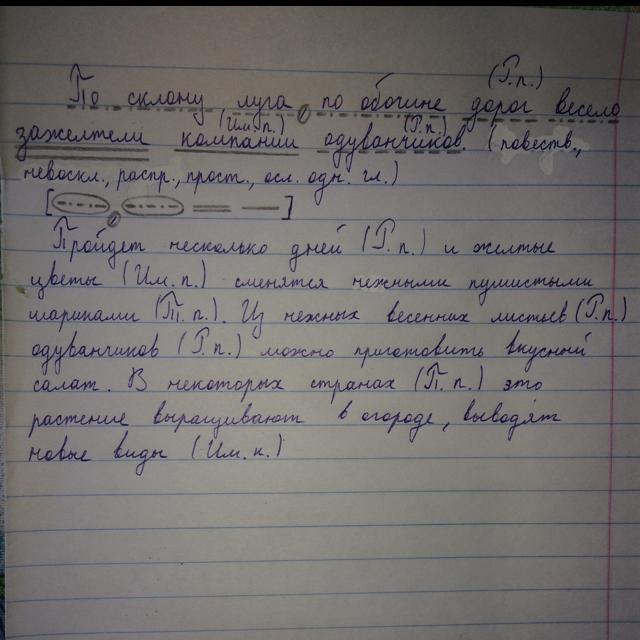 (Р.п.)
По склону луга, по обочине дорог весело
(Им.п.) (Р.п.)
зажелтели компании одуванчиков. (повеств.,
невоскл., распр., прост., осл. одн. гл.)
[ , ]
Пройдет несколько дней (Р.п.) и желтые
цветы (Им.п.) сменятся нежными пушистыми
шариками (Тп.п.). Из нежных весенних листьев (Р.п.)
одуванчиков (Р.п.) можно приготовить вкусный
салат. В некоторых странах (П.п.) это
растение выращивают в огороде, выводят
новые виды (Им.п.)